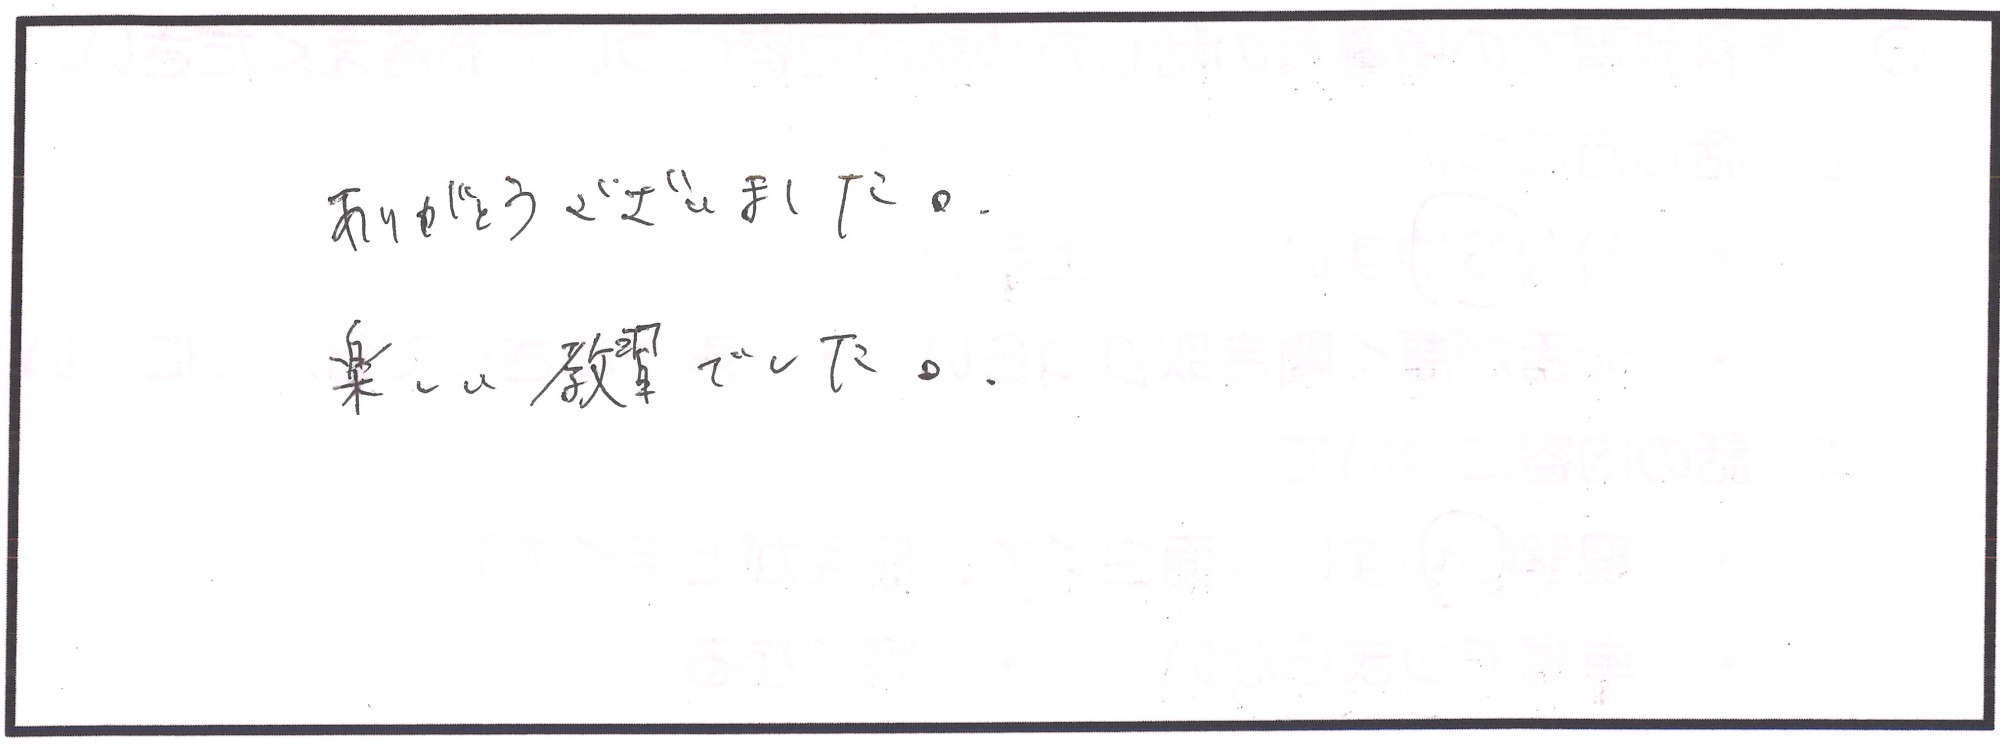 ありがとうございました。
楽しい教習でした。